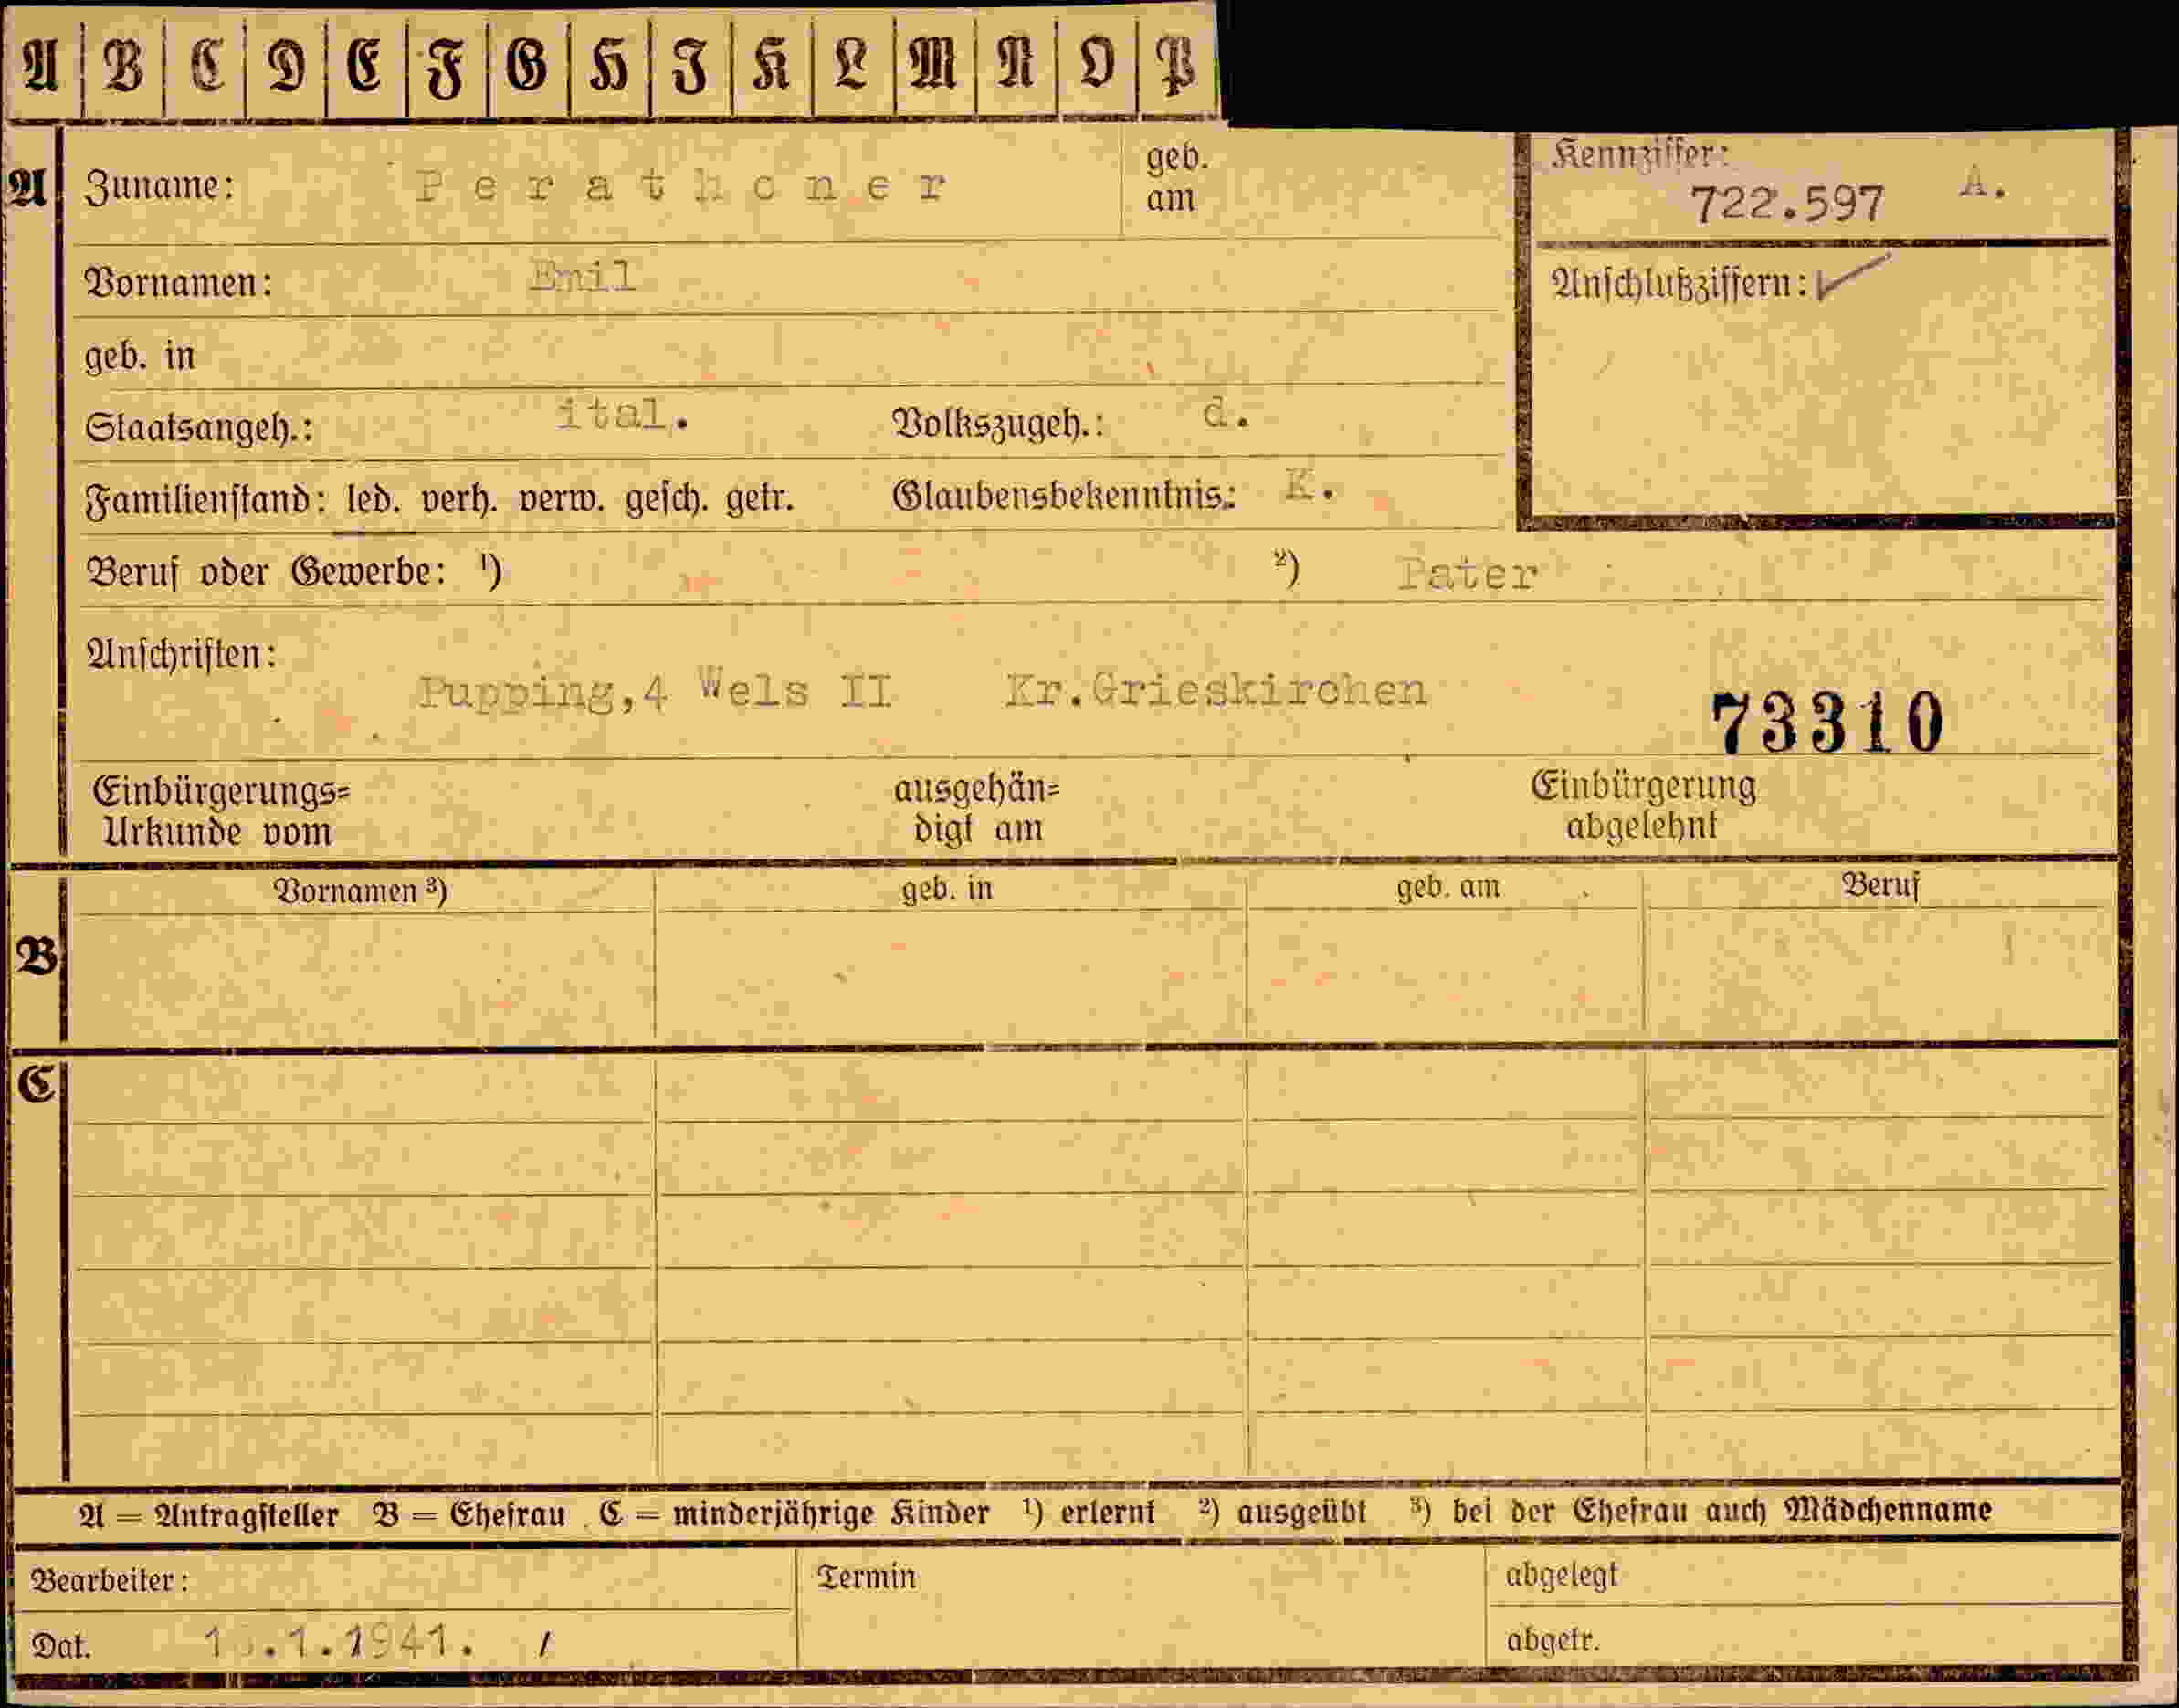 A B C D E F G H I K L M N O P
A Zuname: Perathoner geb. am
Kennziffer: 722.597 A.
Vornamen: Emil
Anschlußziffern:
geb. in
Staatsangeh.: ital. Volkszugeh.: d.
Familienstand: led. verh. verw. gesch. getr. Glaubensbekenntnis: K.
Beruf oder Gewerbe: ¹) ²) Pater
Anschriften:
Pupping,4 Wels II Kr.Grieskirchen
73310
Einbürgerungs=
Urkunde vom
ausgehän=
digt am
Einbürgerung
abgelehnt
B Vornamen ³) geb. in geb. am Beruf
C
A = Antragsteller B = Ehefrau C = minderjährige Kinder ¹) erlernt ²) ausgeübt ³) bei der Ehefrau auch Mädchenname
Bearbeiter: Termin abgelegt
Dat. abgetr.